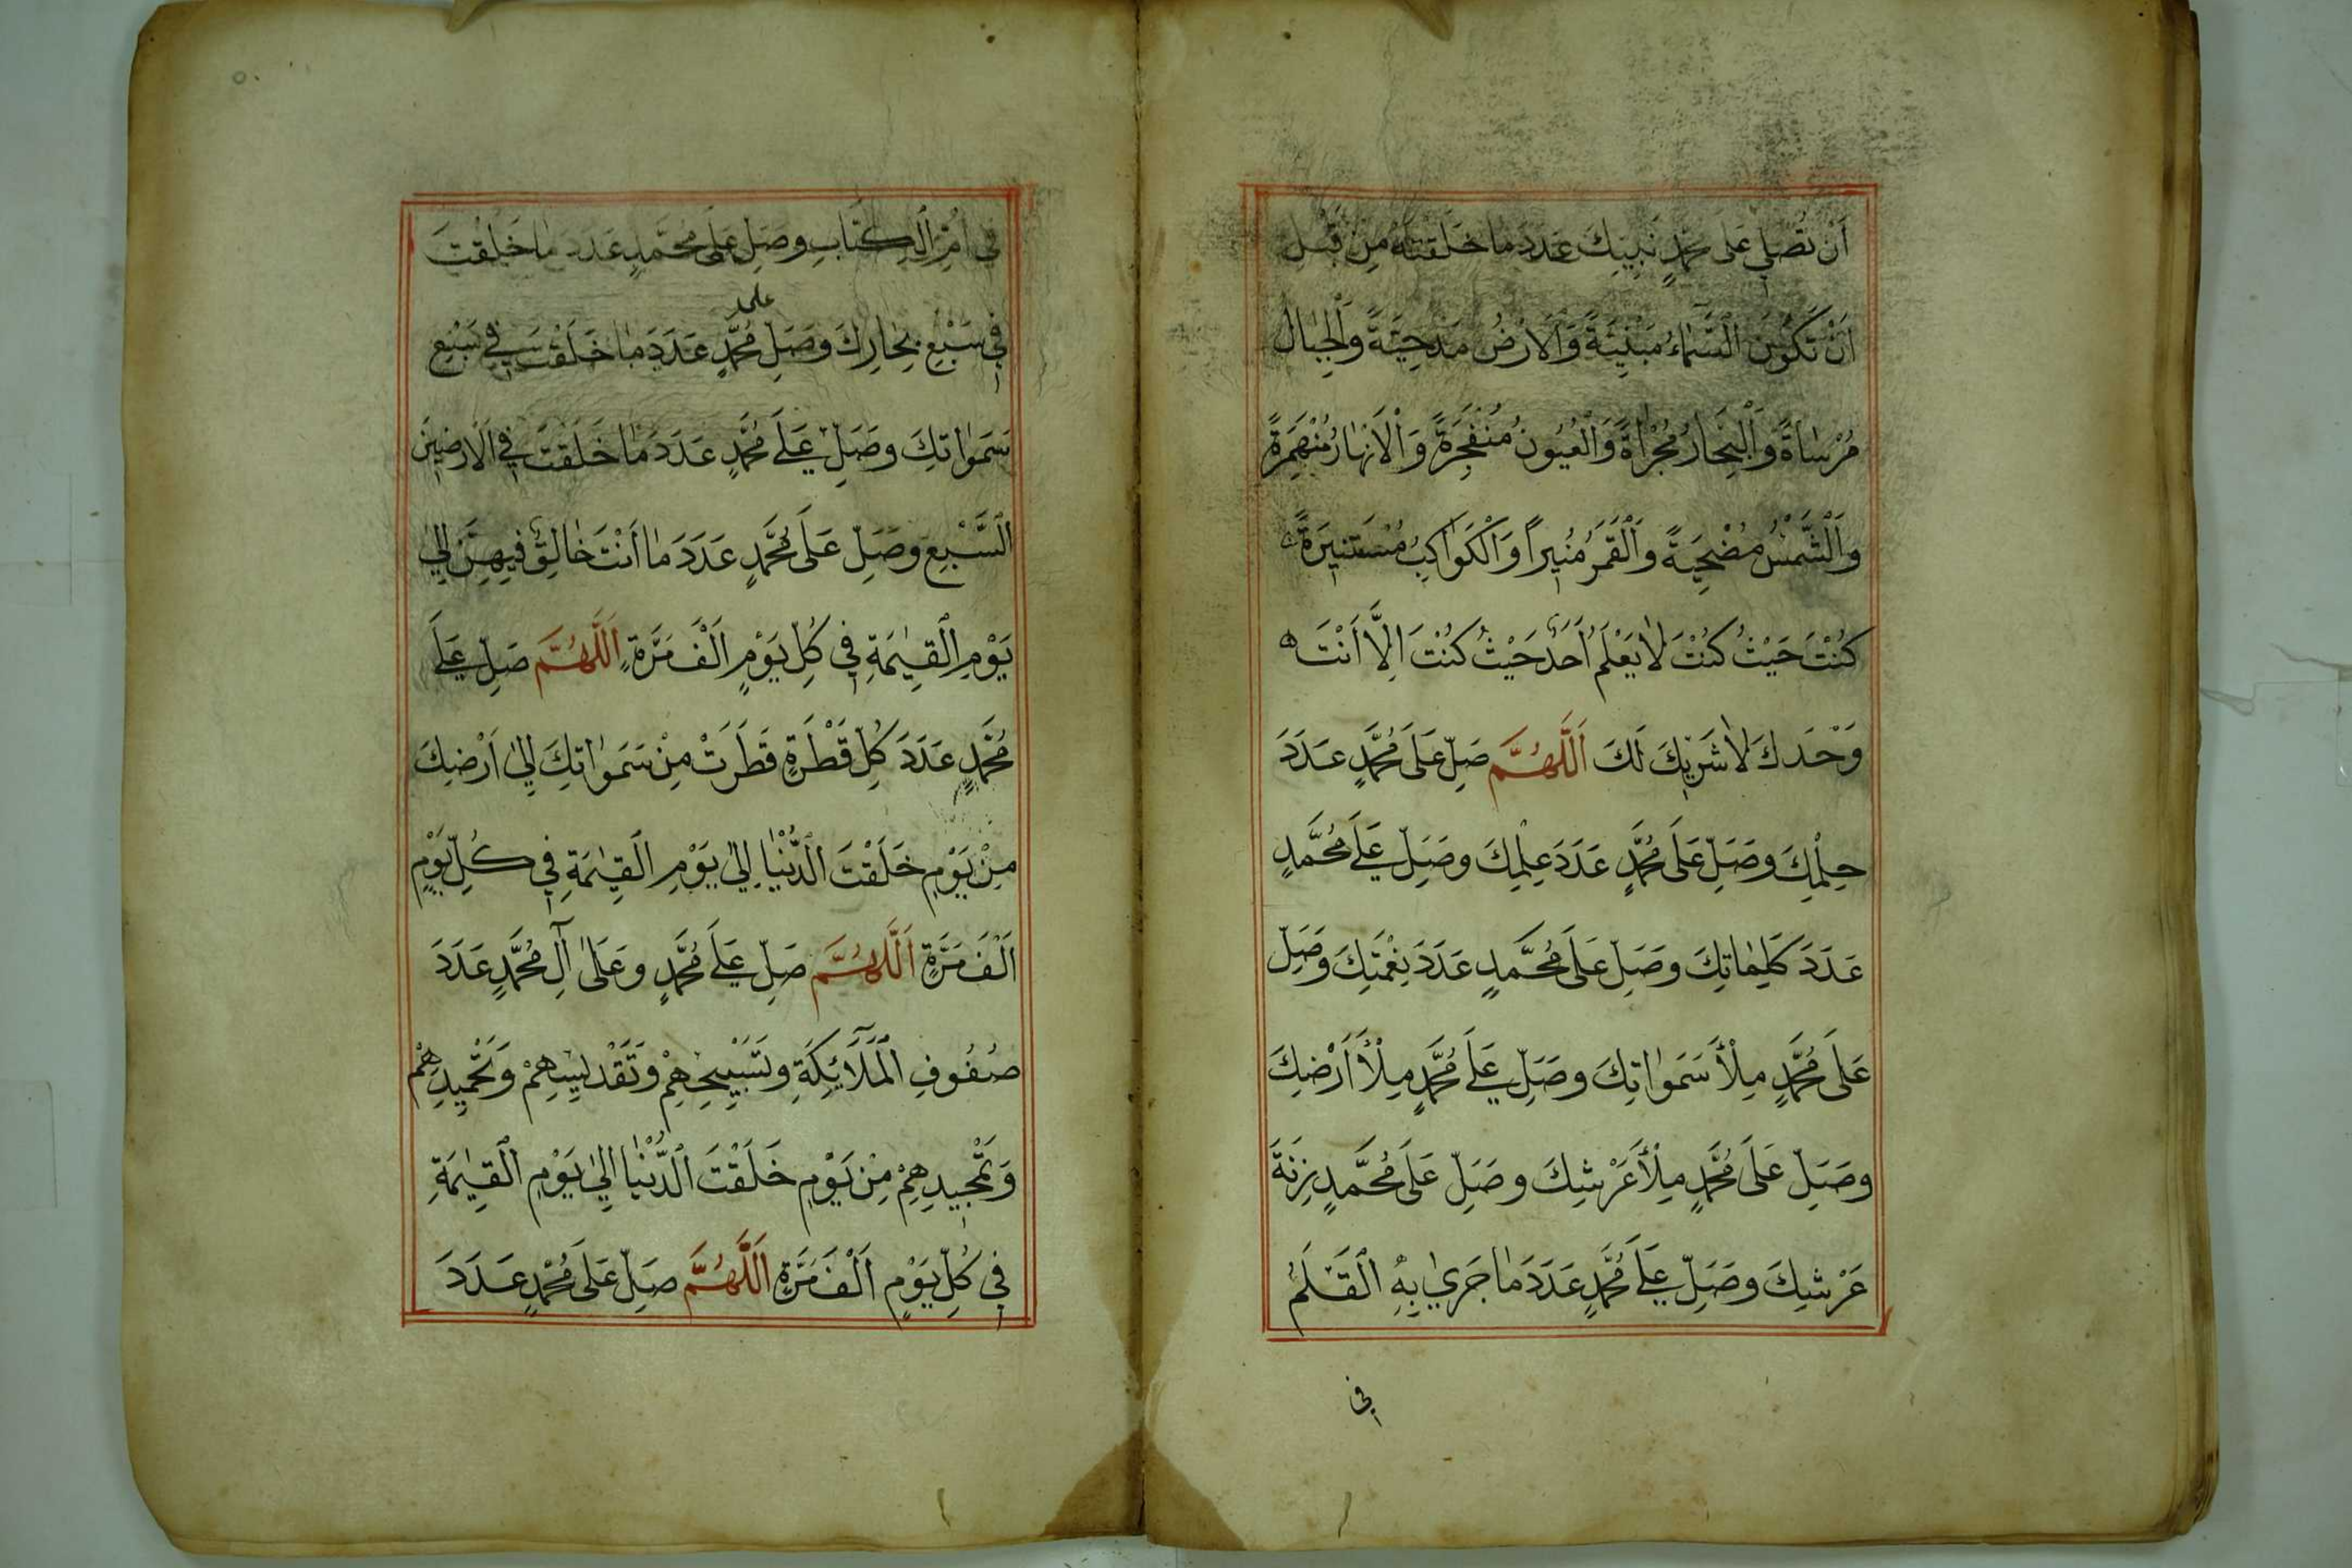 اَنْ تُصَلِّيَ عَلٰى مُحَمَّدٍ نَبِيِّكَ عَدَدَ مَا خَلَقْتَهُ مِنْ قَبْلِ
اَنْ تَكُوْنَ السَّمَاءُ مَبْنِيَّةً وَالْاَرْضُ مَدْحِيَّةً وَالْجِبَالُ
مُرْسَاةً وَالْبِحَارُ مُجْرَاةً وَالْعُيُونُ مُنْفَجِرَةً وَالْاَنْهَارُ مُنْهَمِرَةً
وَالْشَّمْسُ مُضْحِيَةً وَالْقَمَرُ مُنِيراً وَالْكَوَاكِبُ مُسْتَنِيرَةً
كُنْتَ حَيْثُ كُنْتَ لَا يَعْلَمُ اَحَدٌ حَيْثُ كُنْتَ اِلَّا اَنْتَ
وَحْدَكَ لَا شَرِيْكَ لَكَ اَللّٰهُمَّ صَلِّ عَلَى مُحَمَّدٍ عَدَدَ
حِلْمِكَ وَصَلِّ عَلَى مُحَمَّدٍ عَدَدَ عِلْمِكَ وَصَلِّ عَلَى مُحَمَّدٍ
عَدَدَ كَلِمَاتِكَ وَصَلِّ عَلَى مُحَمَّدٍ عَدَدَ نِعْمَتِكَ وَصَلِّ
عَلَى مُحَمَّدٍ مِلْأَ سَمَوَاتِكَ وَصَلِّ عَلَى مُحَمَّدٍ مِلْأَ اَرْضِكَ
وَصَلِّ عَلَى مُحَمَّدٍ مِلْأَ عَرْشِكَ وَصَلِّ عَلَى مُحَمَّدٍ زِنَةَ
عَرْشِكَ وَصَلِّ عَلَى مُحَمَّدٍ عَدَدَ مَا جَرٰي بِهِ الْقَلَمُ
في
فِي اُمِّ الْكِتَابِ وَصَلِّ عَلَى مُحَمَّدٍ عَدَدَ مَا خَلَقْتَ
فِي سَبْعِ بِحَارِكَ وَصَلِّ على مُحَمَّدٍ عَدَدَ مَا خَلَقْتَ فِي سَبْعِ
سَمَوَاتِكَ وَصَلِّ عَلَى مُحَمَّدٍ عَدَدَ مَا خَلَقْتَ فِي الْاَرَضِيْنَ
السَّبْعِ وَصَلِّ عَلَى مُحَمَّدٍ عَدَدَ مَا اَنْتَ خَالِقٌ فِيهِنَّ اِلٰي
يَوْمِ الْقِيٰمَةِ فِي كُلِّ يَوْمٍ اَلْفَ مَرَّةٍ اَللّٰهُمَّ صَلِّ عَلَى
مُحَمَّدٍ عَدَدَ كُلِّ قَطْرَةٍ قَطَرَتْ مِنْ سَمَوَاتِكَ اِلٰي اَرْضِكَ
مِنْ يَوْمِ خَلَقْتَ الدُّنْيَا اِلٰي يَوْمِ الْقِيٰمَةِ فِي كُلِّ يَوْمٍ
اَلْفَ مَرَّةٍ اَللّٰهُمَّ صَلِّ عَلَى مُحَمَّدٍ وَعَلٰى آلِ مُحَمَّدٍ عَدَدَ
صُفُوفِ الْمَلَآئِكَةِ وَتَسْبِيْحِهِمْ وَتَقْدِيْسِهِمْ وَتَحْمِيدِهِمْ
وَتَمْجِيدِهِمْ مِنْ يَوْمِ خَلَقْتَ الدُّنْيَا اِلٰي يَوْمِ الْقِيٰمَةِ
فِي كُلِّ يَوْمٍ اَلْفَ مَرَّةٍ اَللّٰهُمَّ صَلِّ عَلَى مُحَمَّدٍ عَدَدَ